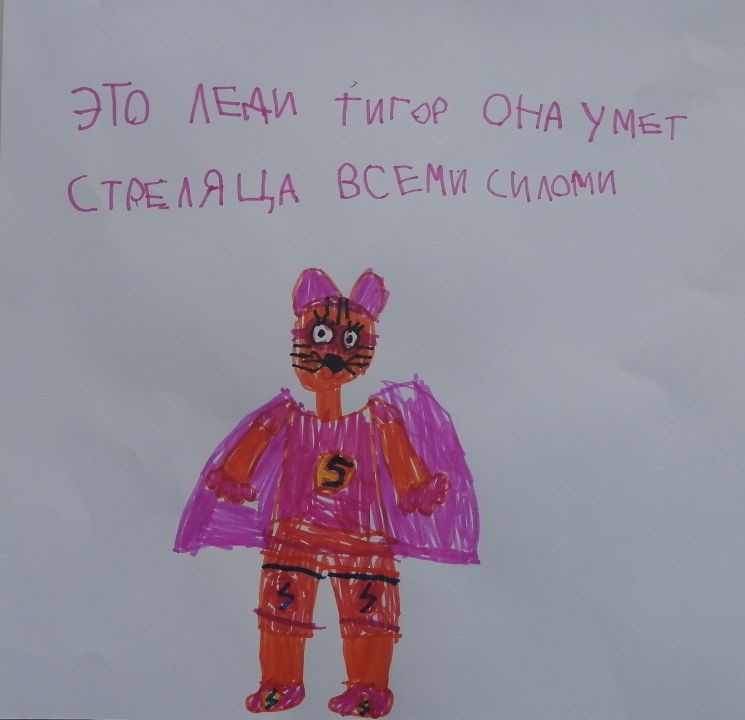 ЭТО ЛЕДИ ТИГОР ОНА УМЕТ
СТРЕЛЯЦА ВСЕМИ СИЛОМИ
S